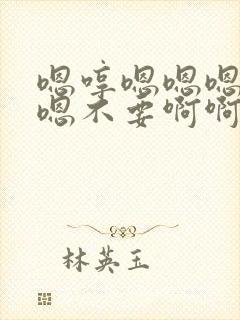 嗯哼嗯嗯嗯
嗯不要啊啊
林英玉